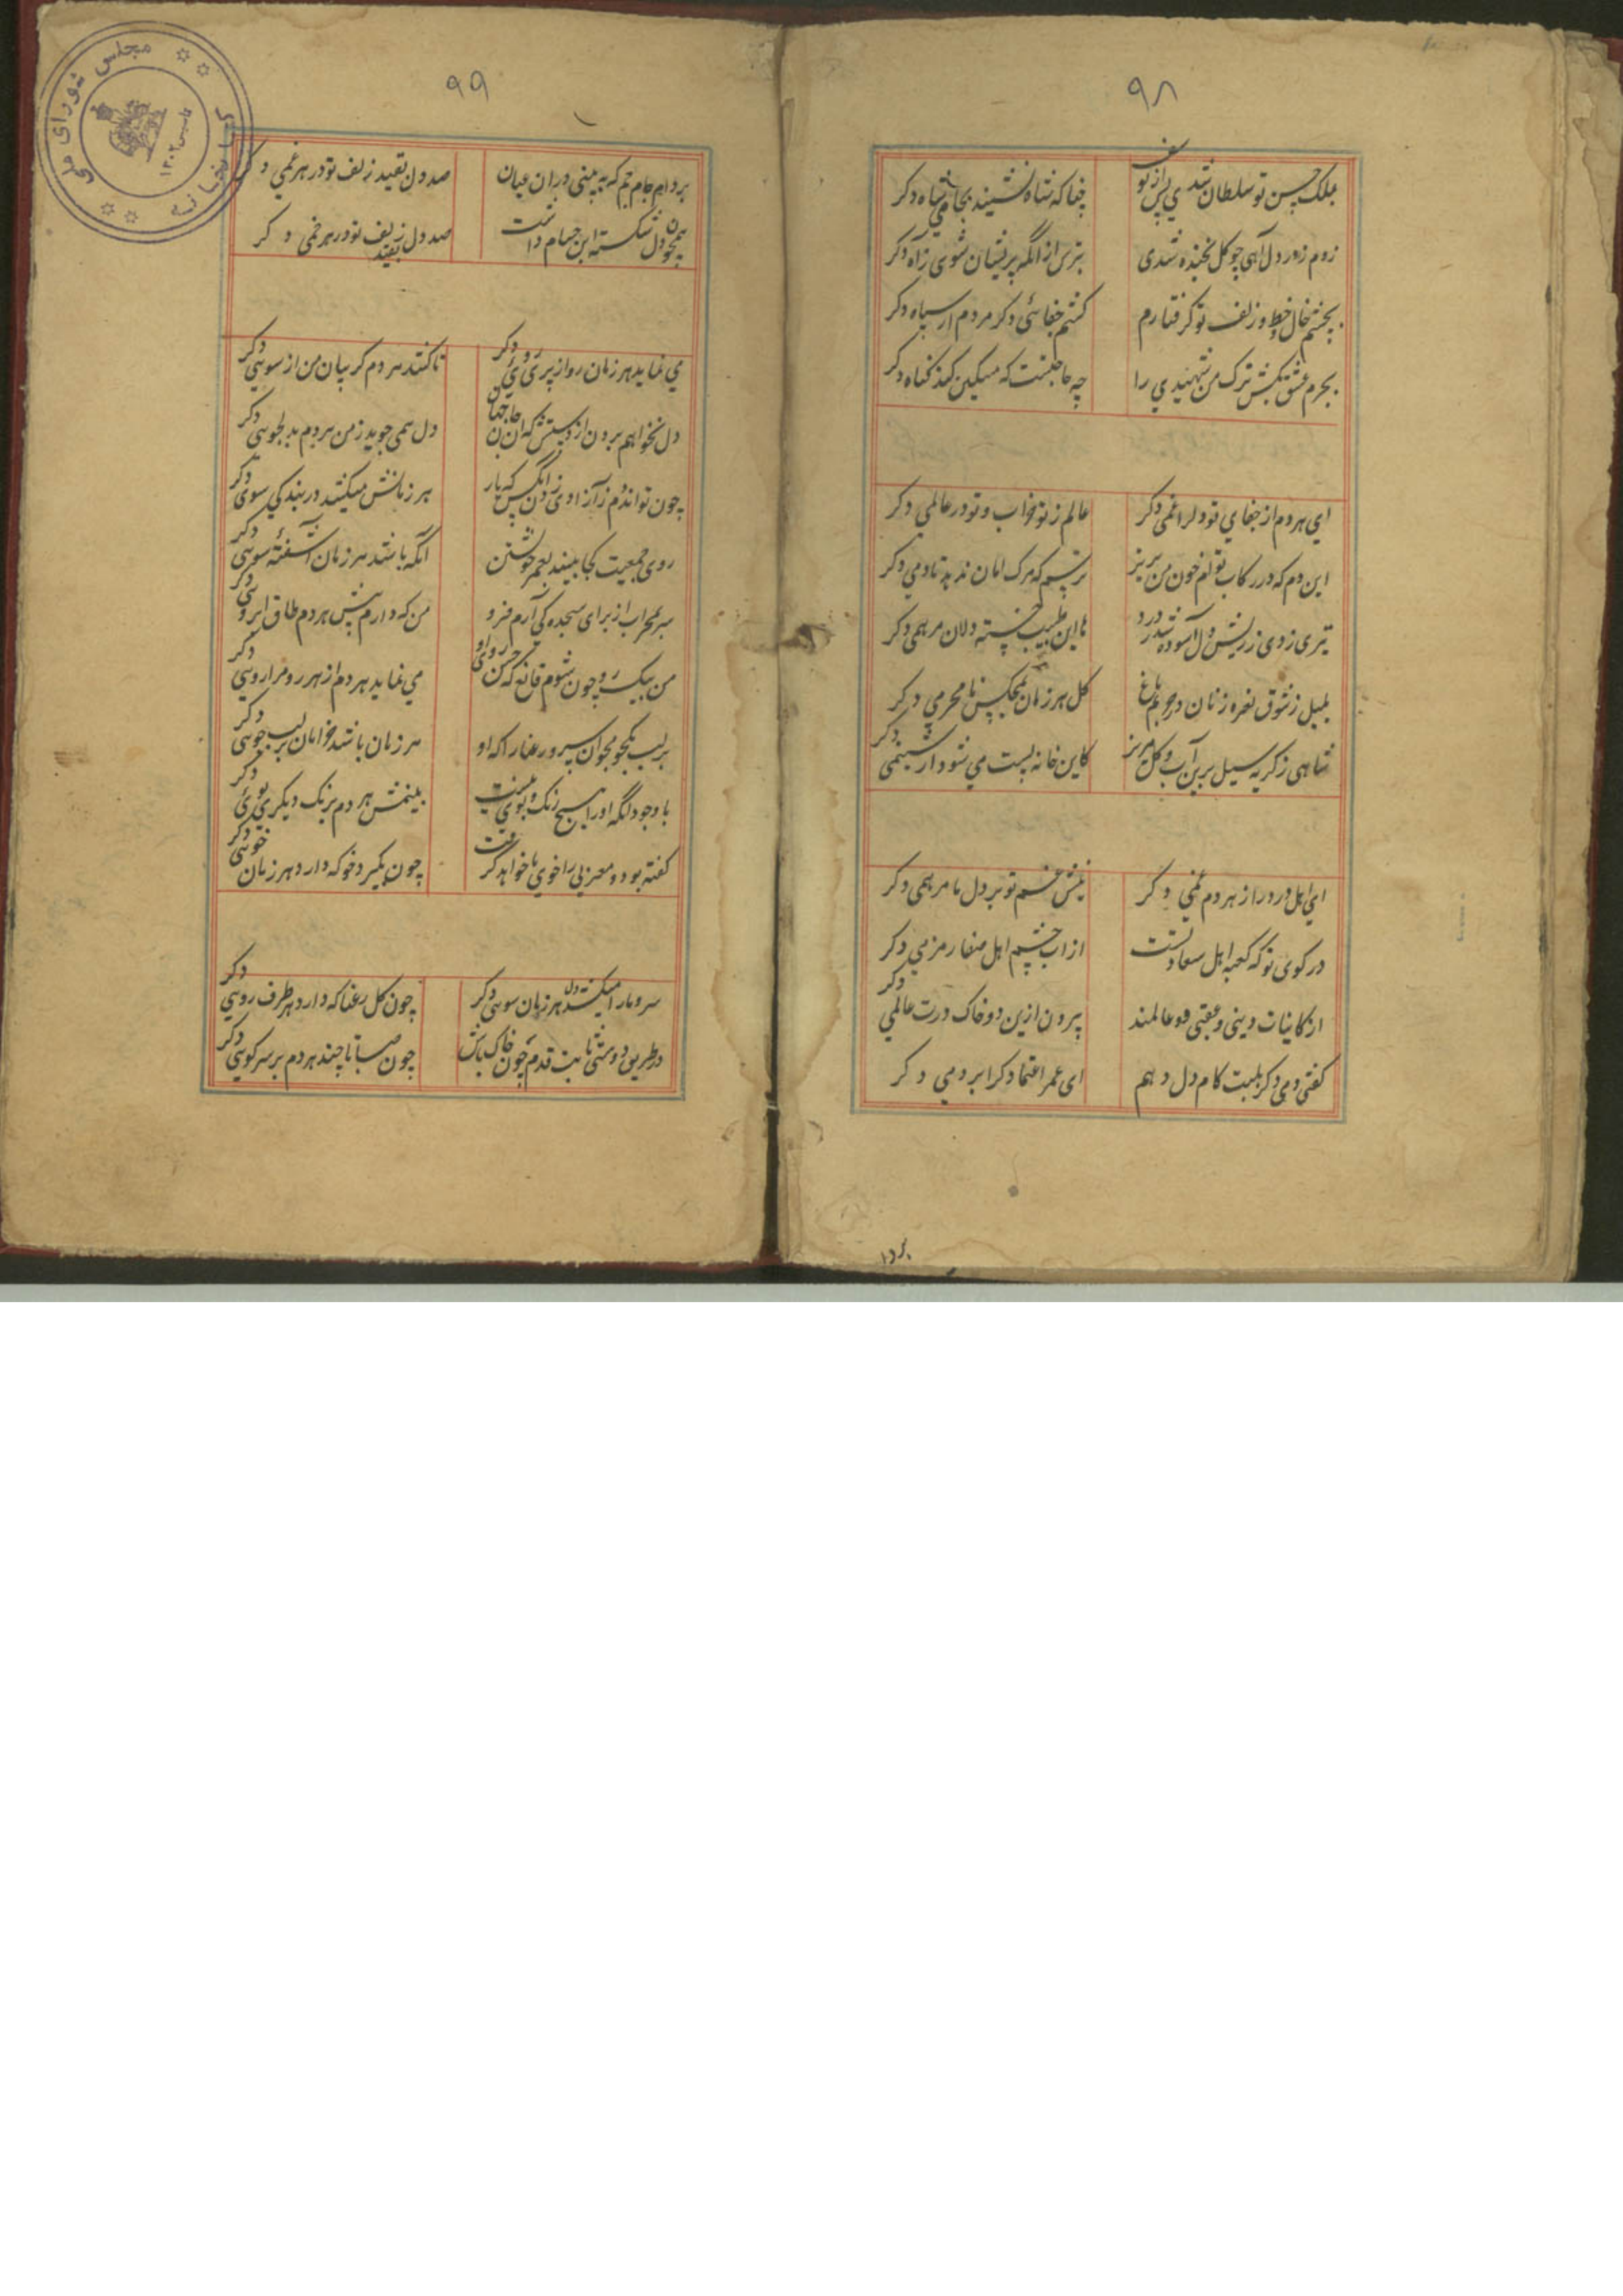 ۹۸
بملک حسن تو سلطان شدی پس از یوسف چنانکه شاه نشیند بجای شاه دکر
زدم ز درد دل آهی چو کل بخنده شدی بترس ازانکه پریشان شوی ز آه دکر
بچشم و خال و خط و زلف تو کرفتارم کشم جفائی دکر هر دم از سپاه دکر
بجرم عشق بکش ترک من شهیدی را چه حاجتست که مسکین کند کناه دکر
ای هر دم از جفای تو دلرا غمی دکر عالم ز تو خراب و تو در عالمی دکر
این دم که در رکاب توام خون من بریز ترسم که مرک امان ندهد تا دمی دکر
تیری زدی ز ریش دل آسوده شد ز درد ها این طبیب خسته دلان مرهمی دکر
بلبل ز شوق نعره زنان در حریم باغ کل هر زمان بمجلس نامحرمی دکر
شاهی ز کریه سیل برین آب و کل مریز کاین خانه پست می شود از شبنمی دکر
ای اهل درد را ز تو هر دم غمی دکر نیش غم تو بر دل ما مرهمی دکر
در کوی تو که کعبه اهل سعادتست از آب چشم اهل صفا زمزمی دکر
از کاینات دینی و عقبی دو عالمند بیرون ازین دو خاک درت عالمی دکر
کفتی دمی دکر بلبت کام دل دهم ای عمر اعتماد کرا بر دمی دکر
۹۹
بردار جام جم که ببینی دران عیان صد دل بقید زلف تو در هر غمی دکر
همچون دل شکسته این جام داشت صد دل بقید زلف تو در هر خمی دکر
می نماید هر زمان رو از پری روئی دکر تا کشد هر دم کریبان من از سوئی دکر
دل نخواهم بردن از دستش که آن جان جهان دل همی جوید ز من هر دم بدلجوئی دکر
چون تواند دم ز آزادی زدن آنکس که یار هر زمانش میکشد در بند کیسوی دکر
روی جمعیت کجا بیند بعمر خویشتن آنکه باشد هر زمان آشفته موئی دکر
سر بمحراب از برای سجده کی آرم فرو من که دارم پیش هر دم طاق ابروئی دکر
من بیک رو چون شوم قانع که حسن روی او می نماید هر دم از هر رو مرا روئی دکر
بر لب یکجو مجو آن سرو رعنا را که او هر زمان باشد خرامان بر لب جوئی دکر
با وجود آنکه او را هیچ رنک و بوی نیست بینمش هر دم برنک دیکر و بوئی دکر
کفته بود مغربی را خوی ما خواهد کرفت چون بکیرد خو که دارد هر زمان خوئی دکر
سرو ما را میکشد دل هر زمان سوئی دکر چون کل رعنا که دارد هر طرف روئی دکر
در طریق دوستی ثابت قدم چون خاک باش چون صبا تا چند هر دم بر سر کوئی دکر
کتابخانه مجلس شورای ملی
تاسیس ۱۳۰۲